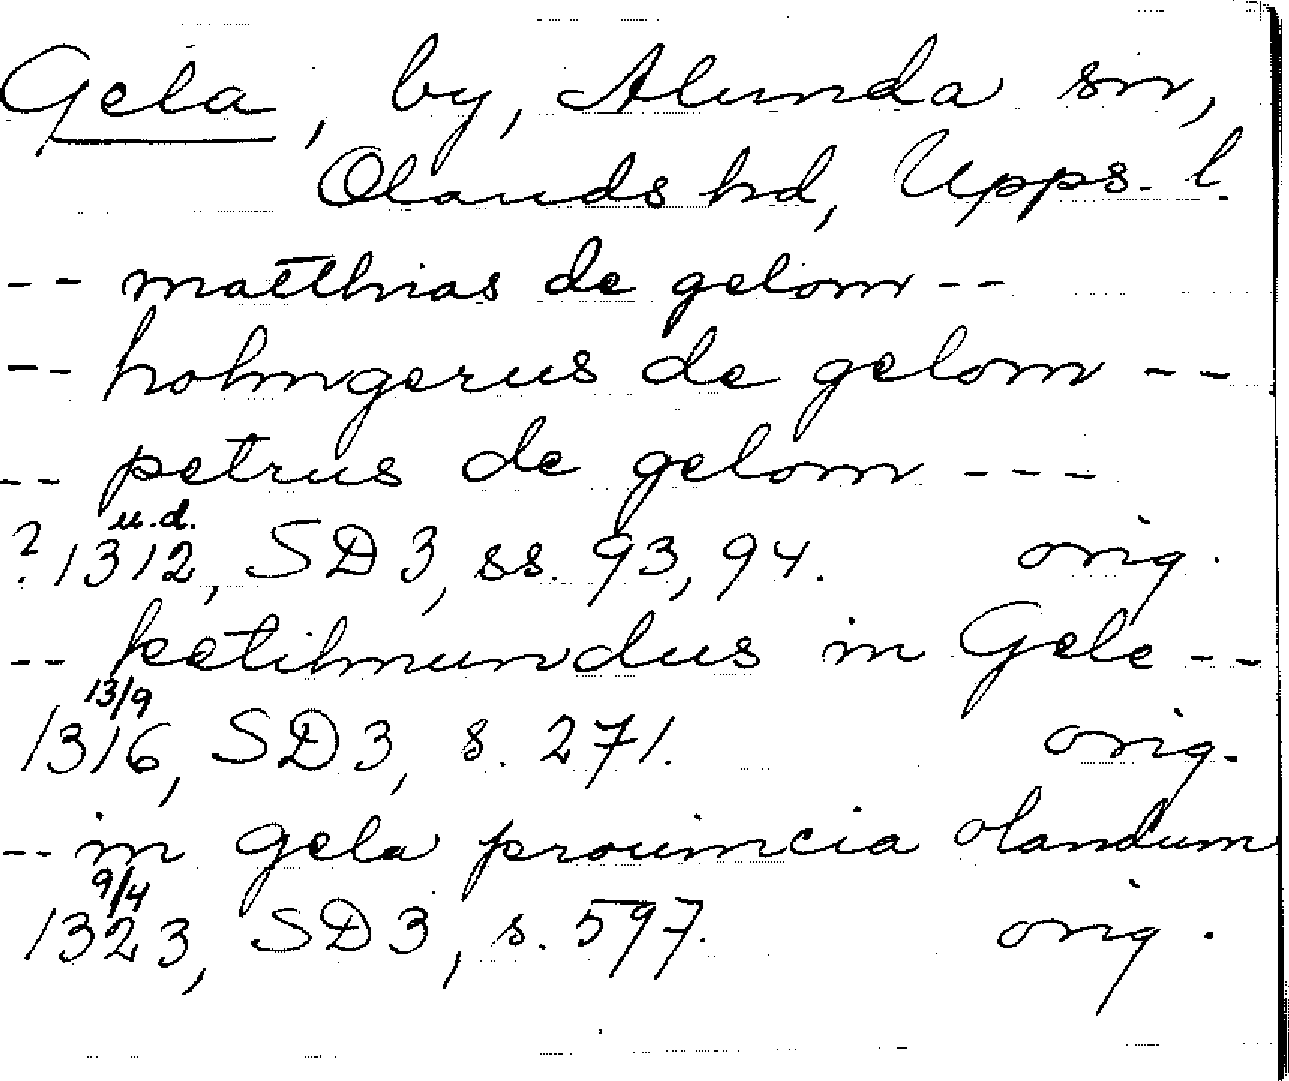 Gela, by, Alunda sn,
Olands hd, Upps. l.
-- matthias de gelom --
-- holmgerus de gelom --
-- petrus de gelom ---
u.d.
? 1312, SD 3, ss. 93, 94. orig.
-- ketilmundus in Gele --
13/9
1316, SD 3, s. 271. orig.
-- in gela prouincia olandum
9/4
1323, SD 3, s. 597. orig.